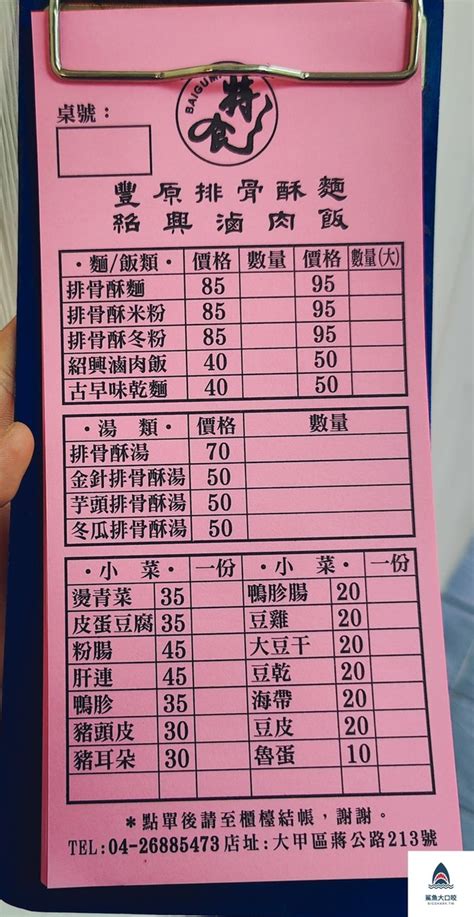 BAIGUM
特食
桌號：
豐原排骨酥麵
紹興滷肉飯
·麵/飯類· 價格 數量 價格 數量(大)
排骨酥麵 85 95
排骨酥米粉 85 95
排骨酥冬粉 85 95
紹興滷肉飯 40 50
古早味乾麵 40 50
·湯 類· 價格 數量
排骨酥湯 70
金針排骨酥湯 50
芋頭排骨酥湯 50
冬瓜排骨酥湯 50
·小 菜· 一份 ·小 菜· 一份
燙青菜 35 鴨胗腸 20
皮蛋豆腐 35 豆雞 20
粉腸 45 大豆干 20
肝連 45 豆乾 20
鴨胗 35 海帶 20
豬頭皮 30 豆皮 20
豬耳朵 30 魯蛋 10
*點單後請至櫃檯結帳，謝謝。
TEL:04-26885473 店址:大甲區蔣公路213號
鯊魚大口咬
BIGSHARK.TW